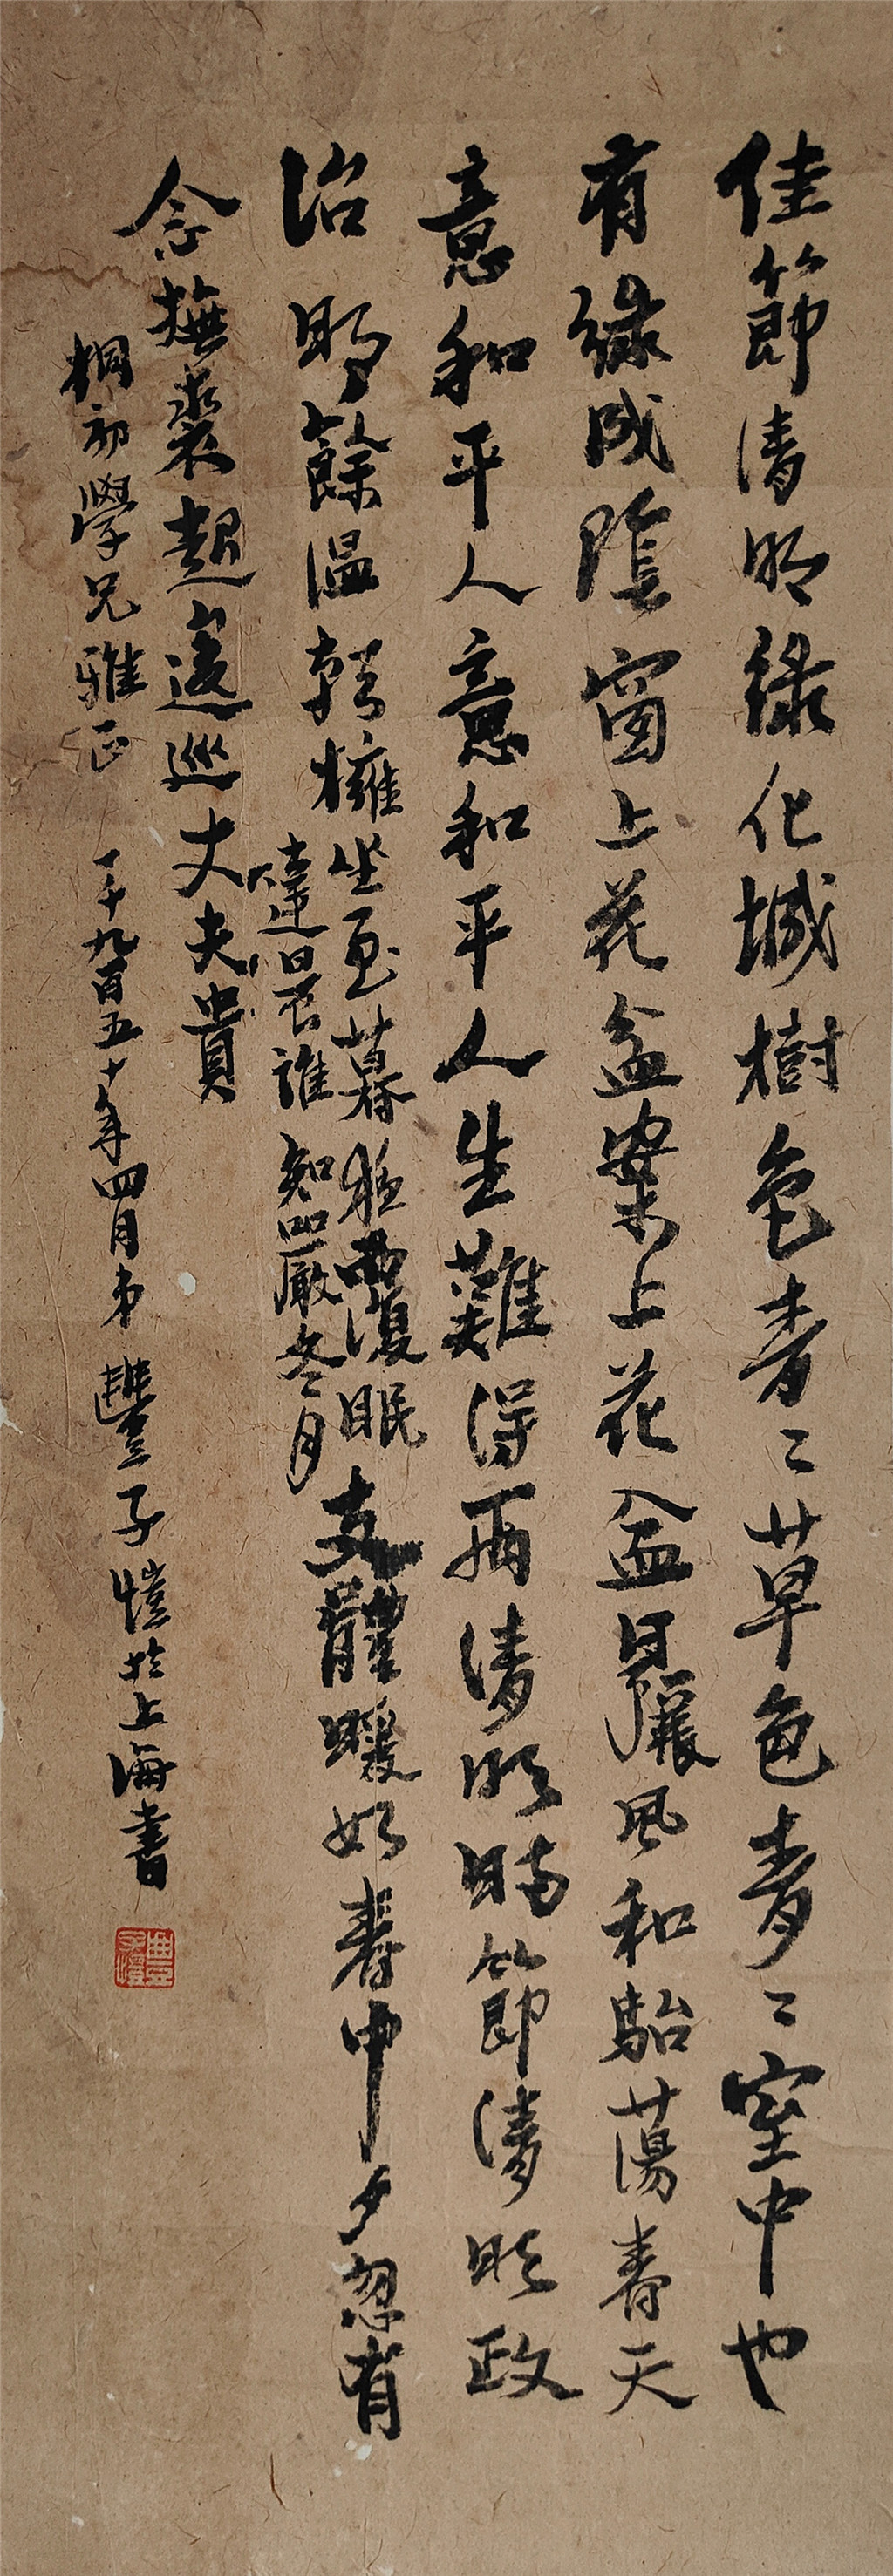 佳節清明綠化城樹色青〻草色青〻室中也
有綠成陰窗上花盆案上花盆日麗風和駘蕩春天
意和平人意和平人生難得兩清明時節清明政
治明餘溫朝擁坐至暮夜覆眠
達晨誰知嚴冬月
支體暖如春中夕忽有
念撫裘起逡巡丈夫貴
桐初學兄雅正 一千九百五十年四月弟豐子愷於上海書